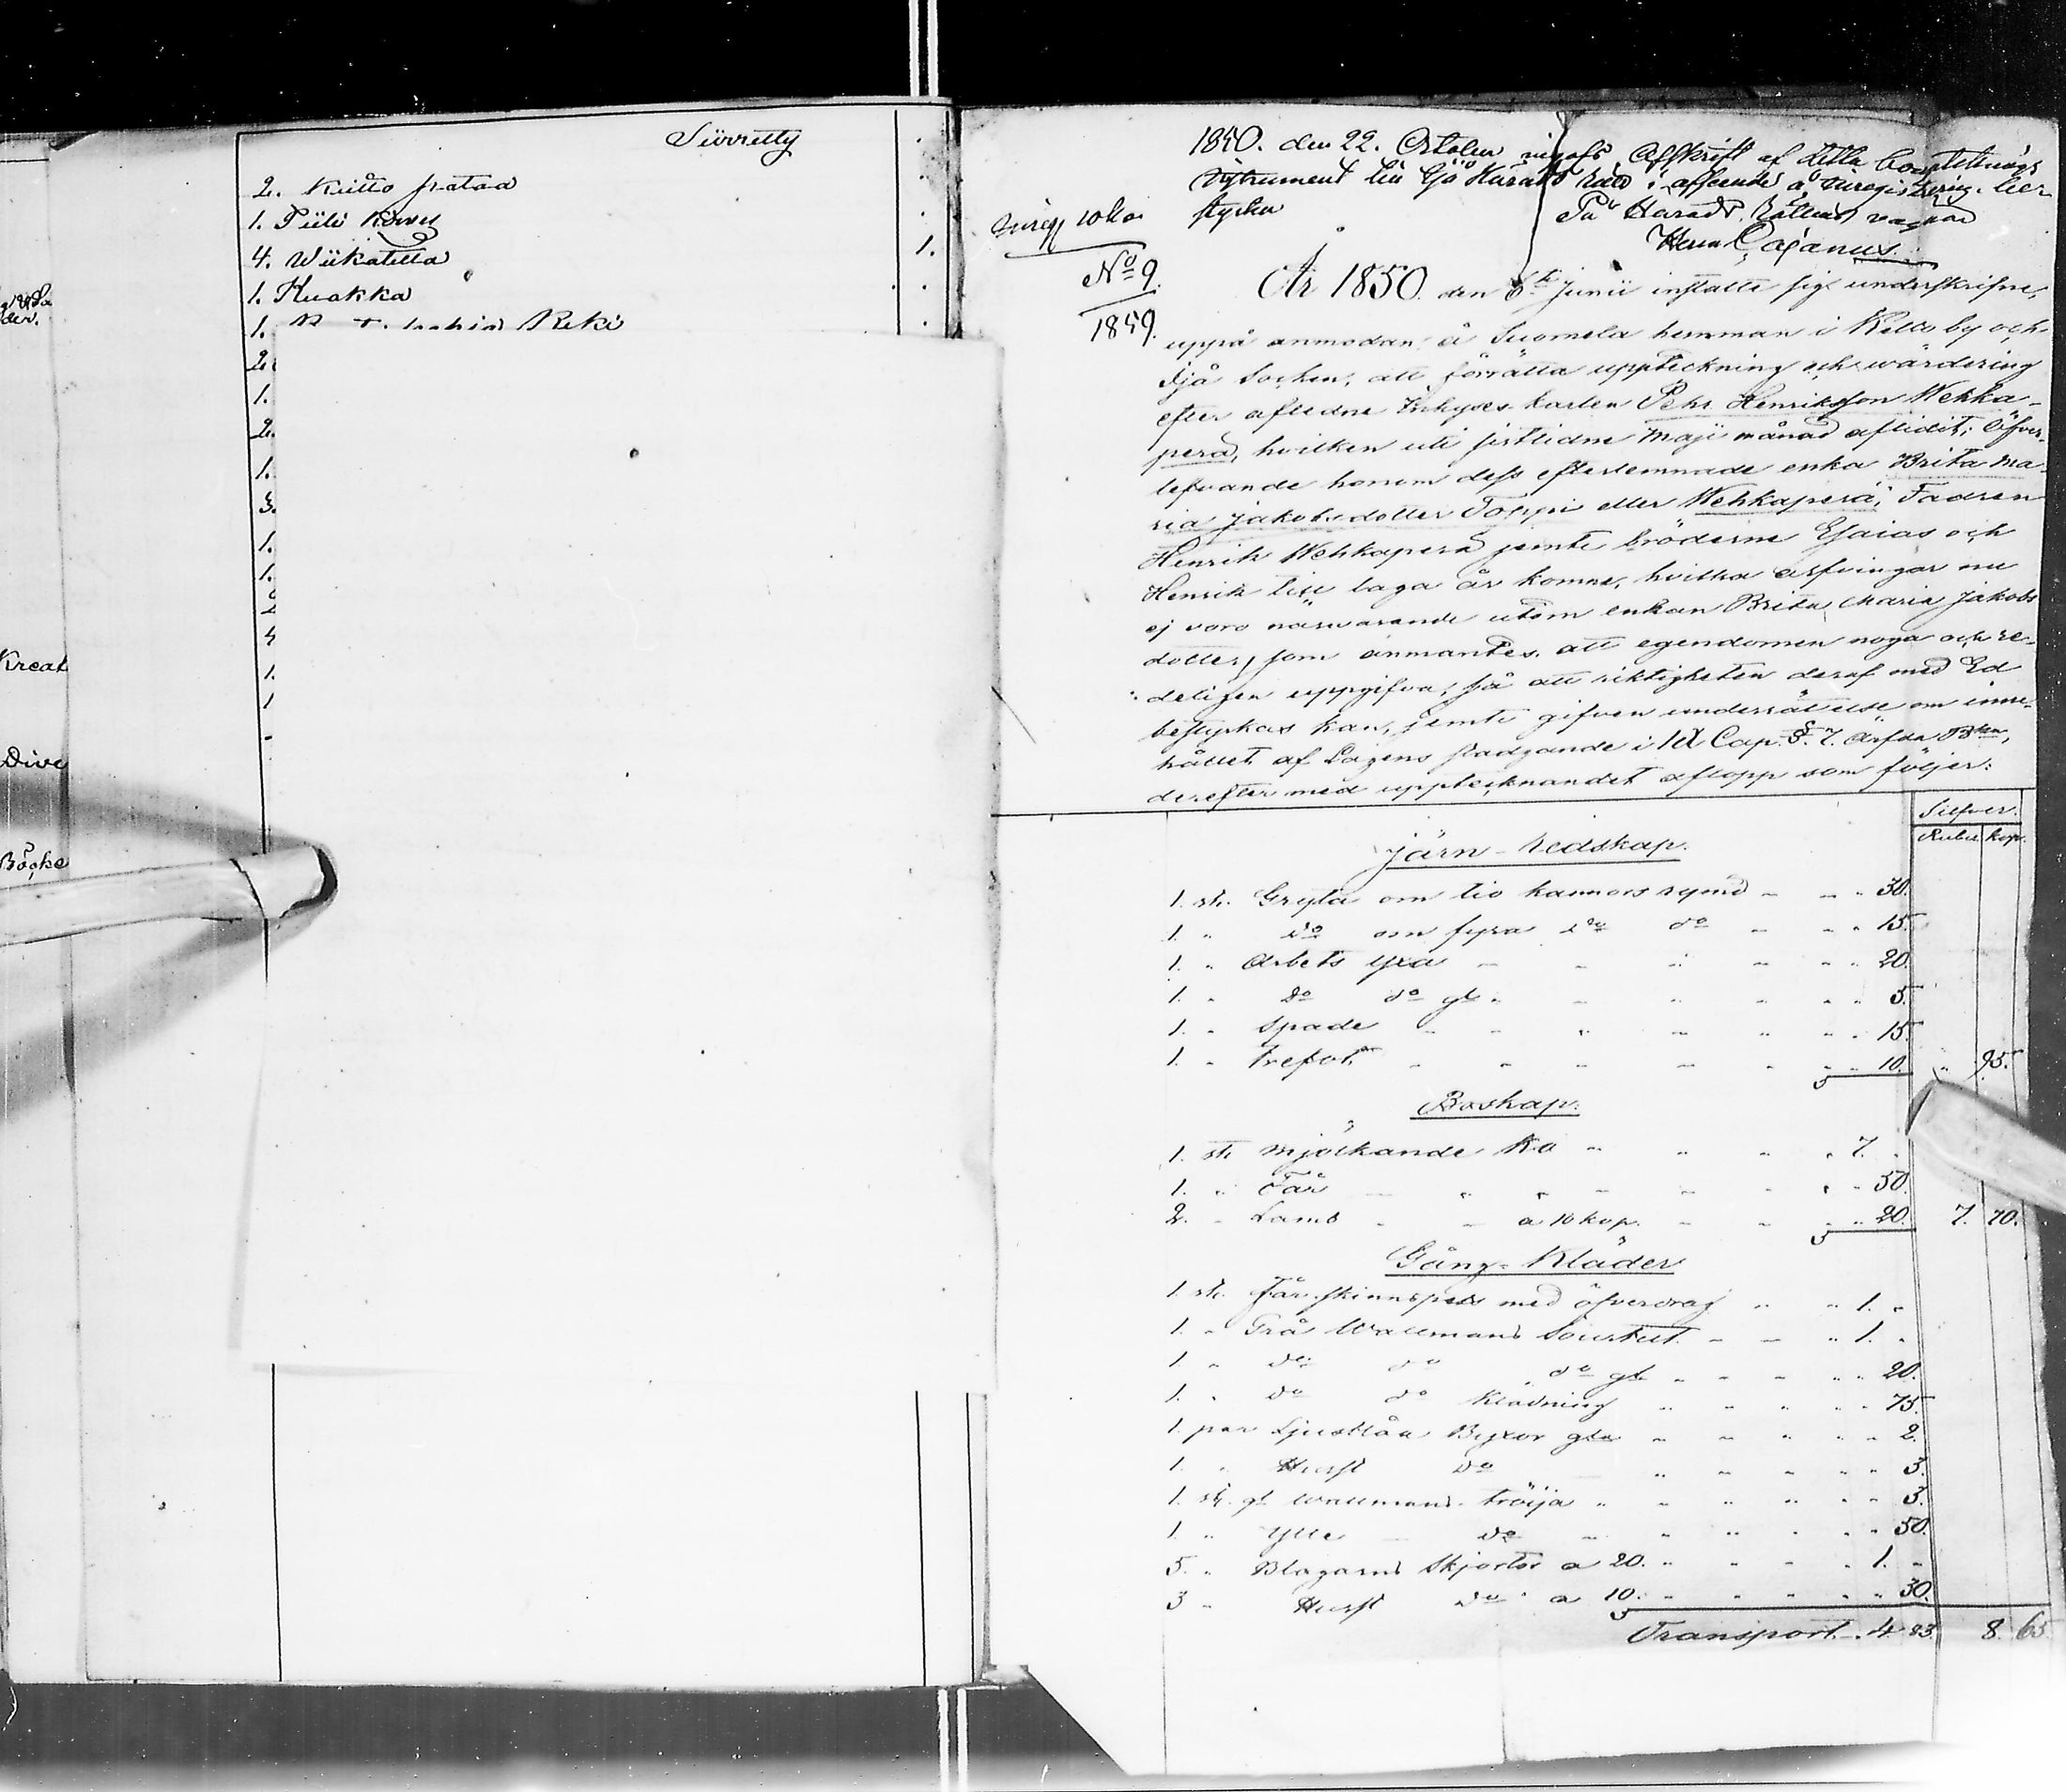 Siirretty
2. Kiitto pataa
1. Piili
4. Wiikatetta 1.
1. Kuokka
1. Reki
2
1.
2.
1.
3.
1.
1.
4
1.
1
Kreat
Dive
Böcke
1850. den 22. October ingafs Afskrift af detta
Instrument till Ijo Härads Rätt i afseende å inregistrering. Här
styrka På Härads Rättens vägnar
Herm Cajanus.
Inreg 10 ko
No 9.
1859.
År 1850. den 6te Junii instälte sig underskrifne,
uppå anmodan å Suomela hemman i Kello by och
Ijå Sochen, att förrätta uppteckning och wärdering
efter aflidne Inhyses karlen Pehr Henriksson Wehka-
perä, hvilken uti sistlidne Maji månad aflidit; Öfver-
lefvande honom dess efterlemnade enka Brita Ma-
ria Jakobsdotter Toppi eller Wehkaperä, Fadren
Henrik Wehkaperä jemte bröderne Esaias och
Henrik till laga år komne, hvilka arfvingar nu
ej voro närvarande utom enkan Brita Maria Jakobs
dotter, som anmantes att egendomen noga och re-
deligen uppgifva, så att riktigheten deraf med Ed
bestyrkas kan, jemte gifven underrättelse om inne-
hållet af Lagens stadgande i IX Cap. §. 7. Ärfda Bkn,
derefter med upptecknandet aflopp som följer:
Silfver.
Rubel kop.
Järn-redskap.
1. st. Gryta om tio kannors rymd - - - 30.
1. " do om fyra do do - - - 15.
1. " Arbets yxa - - - 20.
1. " do do gl. - - - 5.
1. " Spade - - - 15.
1. " Trefot - - - 10. " 95.
Boskap.
1. st. mjölkande Ko - - - 7. "
1. " Får - - - 50.
2. " Lamb - a 10 kop. - - 20. 7. 70.
Gång-Kläder
1. st. Fårskinnspels med öfverdrag - - 1. "
1. " Grå Wallmans Sourtut - - - 1. "
1. " do do do gl - - - 20.
1. " do do Klädning - - - 75.
1. par Ljusblåa Byxor gla - - - 2.
1. " Hurst do - - - 3.
1. st. gl wallmans-tröija - - - 3.
1. " Ylle - do - - - 50.
5. " Blagarns Skjortor a 20. - - - 1. "
3 " Hurst do a 10. - - - 30.
Transport - 4 83. 8. 65.